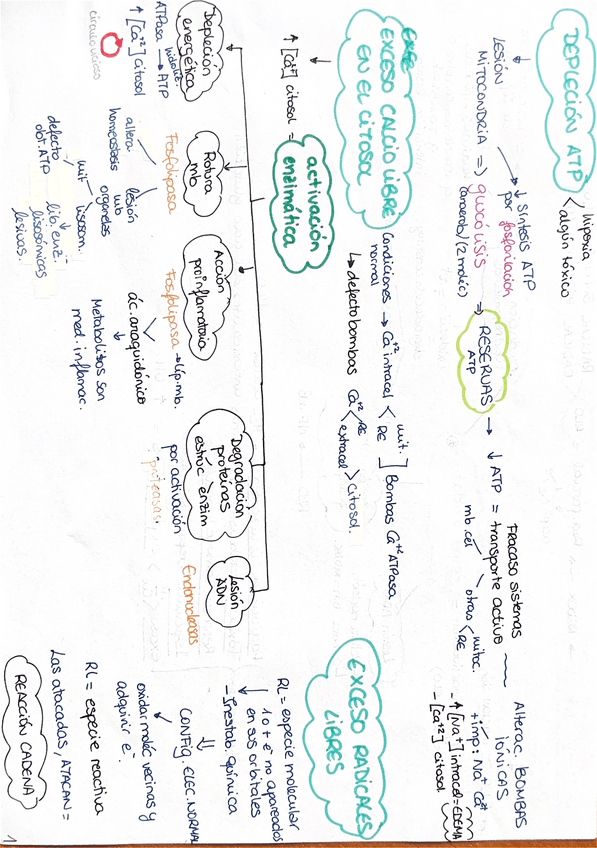 DEPLECIÓN ATP
hipoxia
algún tóxico
LESIÓN
MITOCONDRIA
↓ síntesis ATP
por fosforilación
⇒ glucólisis
(anaerobia) (2 moléc)
⇒ RESERVAS
ATP
→ ↓ ATP =
Fracaso sistemas
transporte activo
mb. cél
otras < mitoc.
RE
Alterac. BOMBAS
IÓNICAS
+imp: Na⁺ Ca²⁺
- ↑ [Na⁺] intracel = EDEMA
- [Ca⁺²] citosol
EXCESO CALCIO LIBRE
EN EL CITOSOL
Condiciones
normal
→ Ca⁺² intracel < mit.
RE
] Bombas Ca⁺² ATPasa
↳ defecto bombas
Ca⁺² < RE
extracel > citosol.
↑ [Ca⁺²] citosol =
activación
enzimática
Depleción
energética
ATPasa hidroliz. → ATP
↑ [Ca⁺²] citosol
círculo vicioso
Rotura
mb
Fosfolipasa
altera
homeostasis
lesión
mb
organelas
mit
lisosom.
defecto
obt. ATP
lib. enz.
lisosómicas
lesivas.
Acción
proinflamatoria
Fosfolipasa → líp. mb.
ác. araquidónico
Metabolitos son
med. inflamac.
Degradación
proteínas
estruc enzim
por activación
proteasas.
Lesión
ADN
Endonucleasas
EXCESO RADICALES
LIBRES
RL = especie molecular
1 o + e⁻ no apareados
en sus orbitales
- Inestab. química
CONFIG. ELEC. NORMAL
oxidar moléc vecinas y
adquirir e⁻.
RL = especie reactiva
Las atacadas, ATACAN =
REACCIÓN CADENA
1